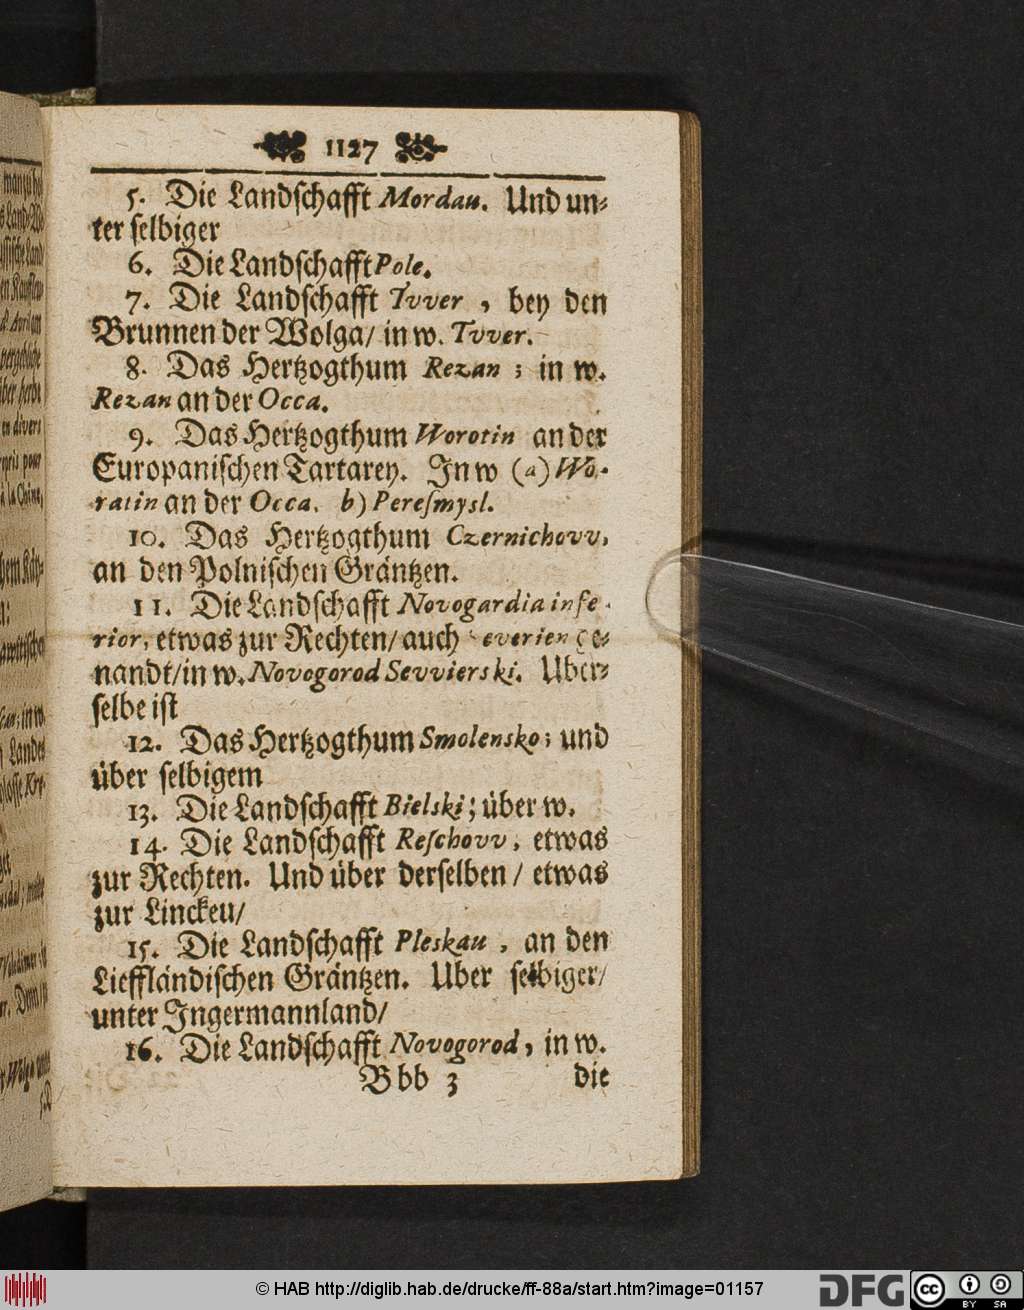 1127
5. Die Landschafft Mordau. Und un-
ter selbiger
6. Die Landschafft Pole.
7. Die Landschafft Tvver, bey den
Brunnen der Wolga/ in w. Tvver.
8. Das Hertzogthum Rezan; in w.
Rezan an der Occa.
9. Das Hertzogthum Worotin an der
Europanischen Tartarey. In w (a) Wo-
ratin an der Occa. b) Peresmysl.
10. Das Hertzogthum Czernichovv,
an den Polnischen Gräntzen.
11. Die Landschafft Novogardia infe-
rior, etwas zur Rechten/ auch everien ge-
nandt/ in w. Novogorod Sevvierski. Uber-
selbe ist
12. Das Hertzogthum Smolensko; und
über selbigem
13. Die Landschafft Bielski; über w.
14. Die Landschafft Reschovv, etwas
zur Rechten. Und über derselben/ etwas
zur Linckeu/
15. Die Landschafft Pleskau, an den
Lieffländischen Gräntzen. Uber selbiger/
unter Ingermannland/
16. Die Landschafft Novogorod, in w.
Bbb 3 die
© HAB http://diglib.hab.de/drucke/ff-88a/start.htm?image=01157
DFG cc BY SA